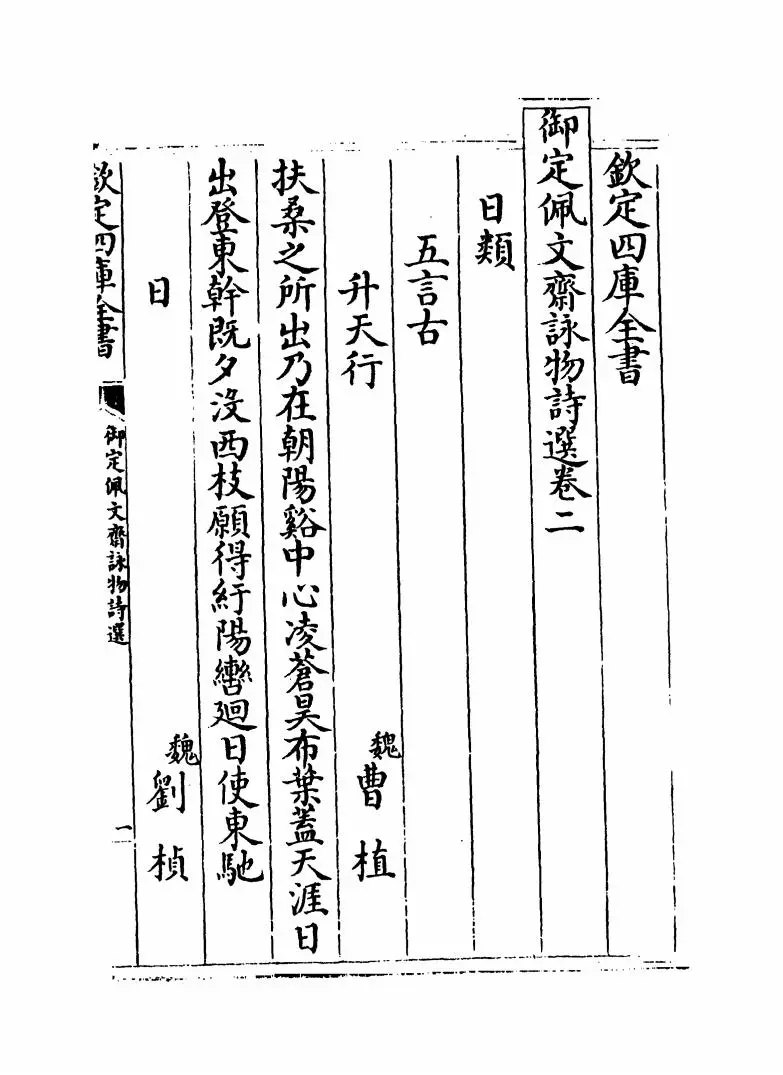 欽定四庫全書
御定佩文齋詠物詩選卷二
日類
五言古
升天行 魏曹植
扶桑之所出乃在朝陽谿中心凌蒼昊布葉蓋天涯日
出登東幹既夕沒西枝願得紆陽轡廻日使東馳
日 魏劉楨
欽定四庫全書
御定佩文齋詠物詩選
一